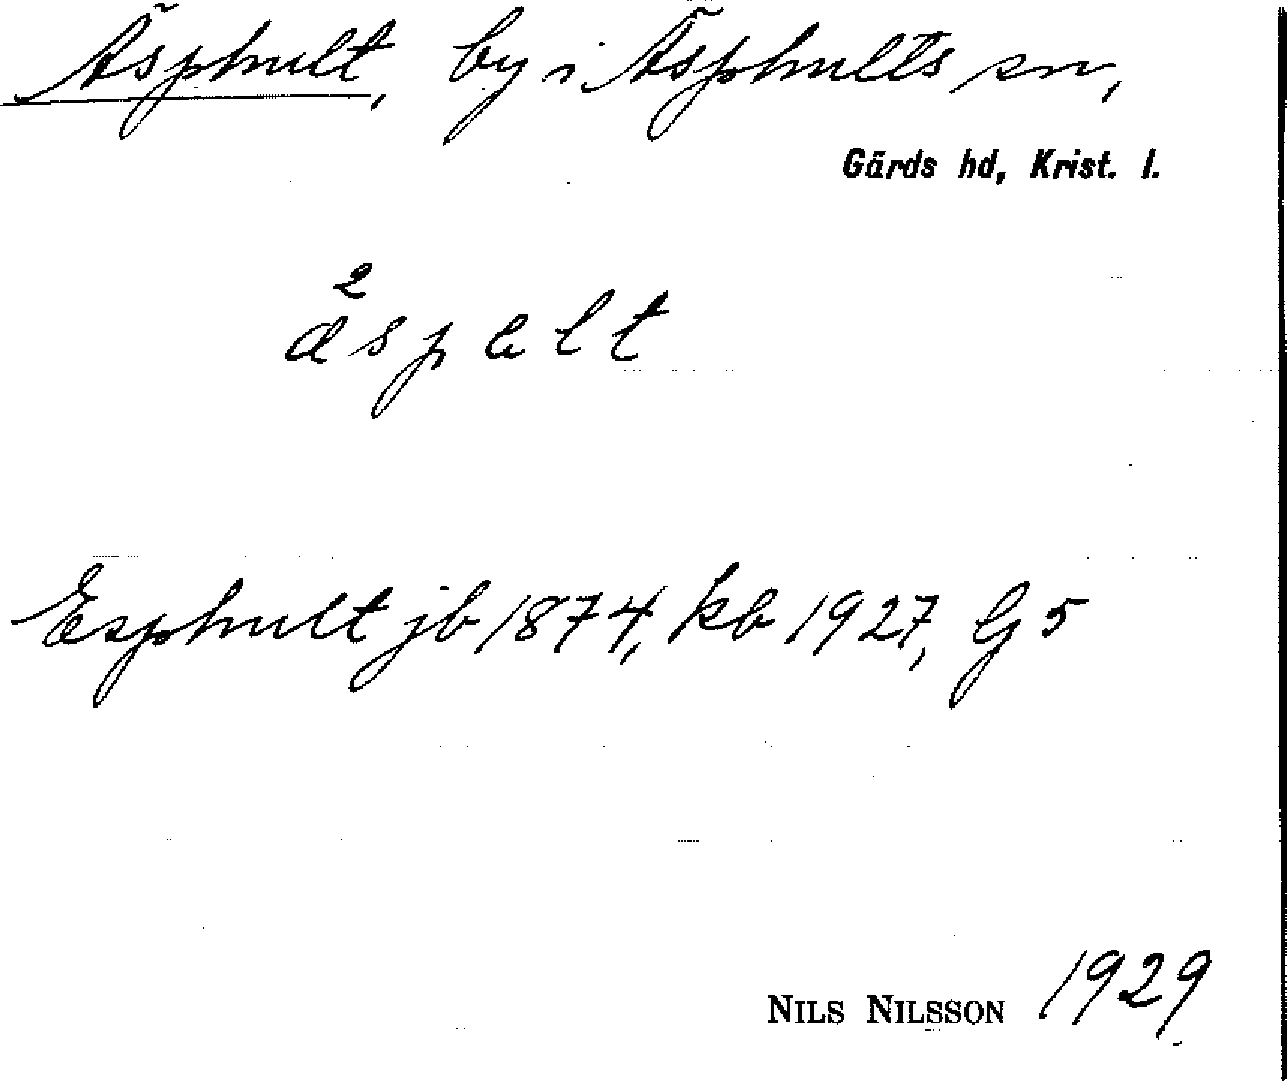 Äsphult, by i Äsphults sn,
Gärds hd, Krist. l.
2
äspalt
Esphult jb 1874, kb 1927, G5
NILS NILSSON 1929